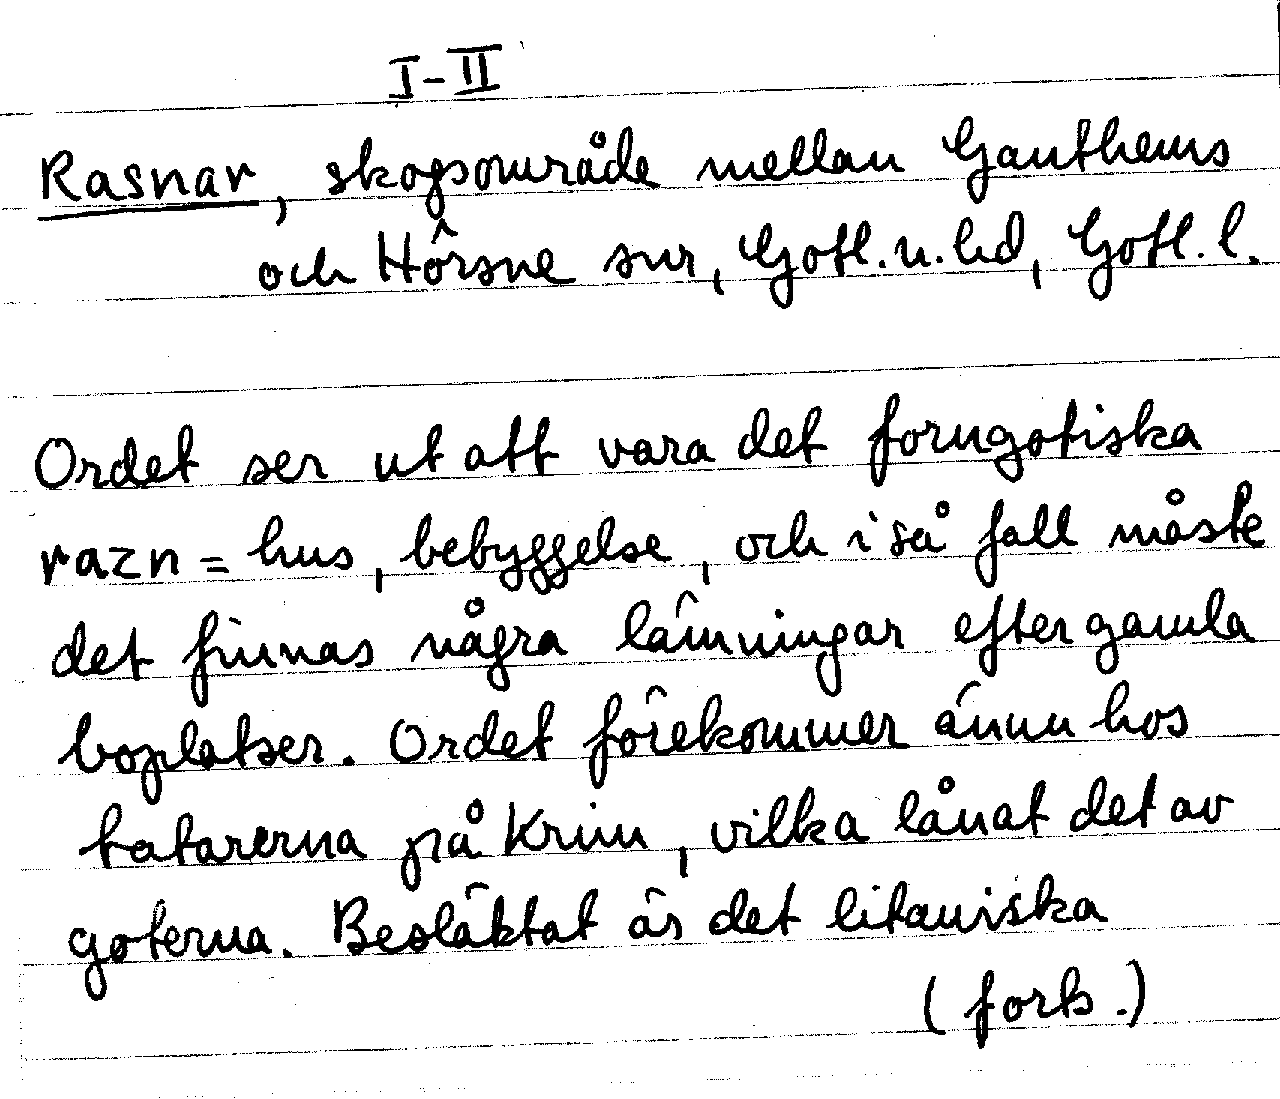 I-II
Rasnar, skogsområde mellan Ganthems
och Hörsne snr, Gotl. n. hd, Gotl. l.
Ordet ser ut att vara det forngotiska
razn = hus, bebyggelse, och i så fall måste
det finnas några lämningar efter gamla
boplatser. Ordet förekommer ännu hos
tatarerna på Krim, vilka lånat det av
goterna. Besläktat är det litauiska
(forts.)